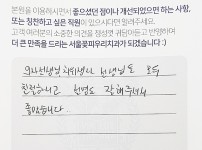 본원을 이용하시면서 좋으셨던 점이나 개선되었으면 하는 사항,
또는 칭찬하고 싶은 직원이 있으시다면 알려주세요.
고객 여러분의 소중한 의견을 정성껏 귀담아듣고 반영하여
더 큰 만족을 드리는 서울꽃피우리치과가 되겠습니다 :)
의사선생님 치위생사 선생님들 모두
친절하시고 설명도 잘해주셔서
좋았습니다